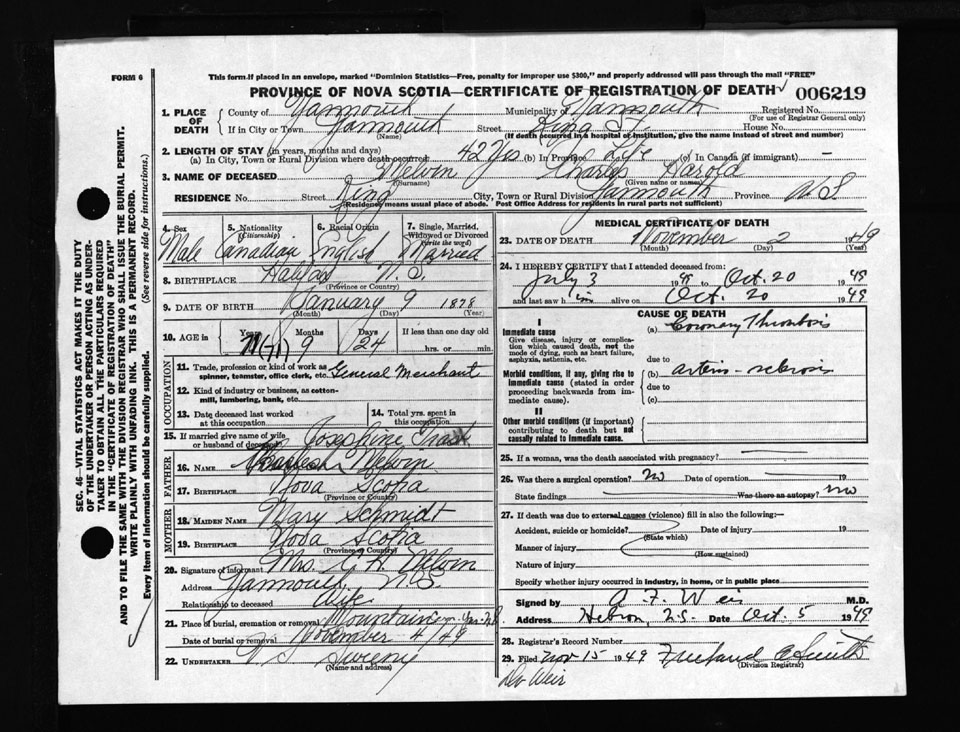 FORM 6
This form if placed in an envelope, marked "Dominion Statistics—Free, penalty for improper use $300," and properly addressed will pass through the mail "FREE"
PROVINCE OF NOVA SCOTIA—CERTIFICATE OF REGISTRATION OF DEATH 006219
1. PLACE OF DEATH
County of Yarmouth Municipality of Yarmouth Registered No.
(For use of Registrar General only)
If in City or Town Yarmouth Street King St. House No.
(Name) (If death occurred in a hospital or institution, give the name instead of street and number)
2. LENGTH OF STAY (in years, months and days)
(a) In City, Town or Rural Division where death occurred 42 Yrs (b) In Province Life (c) In Canada (if immigrant) —
3. NAME OF DECEASED Melvin Charles Harold
(Surname) (Given name or names)
RESIDENCE No. Street King City, Town or Rural Division Yarmouth Province N.S.
(Residency means usual place of abode. Post Office Address for residents in rural parts not sufficient)
4. Sex 5. Nationality (Citizenship) 6. Racial Origin 7. Single, Married, Widowed or Divorced (write the word)
Male Canadian English Married
8. BIRTHPLACE Halifax N.S.
(Province or Country)
9. DATE OF BIRTH January 9 1878
(Month) (Day) (Year)
10. AGE in Years Months Days If less than one day
71 (71) 9 24 hrs. or min.
OCCUPATION
11. Trade, profession or kind of work as spinner, teamster, office clerk, etc. General Merchant
12. Kind of industry or business, as cotton-mill, lumbering, bank, etc.
13. Date deceased last worked at this occupation 14. Total yrs. spent in this occupation
15. If married give name of wife or husband of deceased Josephine Trask
FATHER
16. NAME Charles Melvin
17. BIRTHPLACE Nova Scotia
(Province or Country)
MOTHER
18. MAIDEN NAME Mary Schmidt
19. BIRTHPLACE Nova Scotia
(Province or Country)
20. Signature of informant Mrs. C. H. Melvin
Address Yarmouth, N.S.
Relationship to deceased Wife
21. Place of burial, cremation or removal Mountain
Date of burial or removal November 4/49
22. UNDERTAKER V S Sweeny
(Name and address)
MEDICAL CERTIFICATE OF DEATH
23. DATE OF DEATH November 2 1949
(Month) (Day) (Year)
24. I HEREBY CERTIFY that I attended deceased from:
July 3 1949 to Oct. 20 1949
and last saw him alive on Oct. 20 1949
CAUSE OF DEATH
I
Immediate cause (a) Coronary Thrombosis
Give disease, injury or complication which caused death, not the mode of dying, such as heart failure, asphyxia, asthenia, etc.
due to
Morbid conditions, if any, giving rise to immediate cause (stated in order proceeding backwards from immediate cause) (b) arterio-sclerosis
due to
(c)
II
Other morbid conditions (if important) contributing to death but not causally related to immediate cause.
25. If a woman, was the death associated with pregnancy?
26. Was there a surgical operation? No Date of operation 19
State findings Was there an autopsy? no
27. If death was due to external causes (violence) fill in also the following:—
Accident, suicide or homicide? Date of injury 19
(State which)
Manner of injury
(How sustained)
Nature of injury
Specify whether injury occurred in industry, in home, or in public place
Signed by A F Weir M.D.
Address Hebron, N.S. Date Oct. 5 1949
28. Registrar's Record Number
29. Filed Nov 15 1949 Freeland C Smith
(Division Registrar)
Dev Weir
SEC. 46—VITAL STATISTICS ACT MAKES IT THE DUTY OF THE UNDERTAKER OR PERSON ACTING AS UNDERTAKER TO OBTAIN ALL THE PARTICULARS REQUIRED IN THE "CERTIFICATE OF REGISTRATION OF DEATH" AND TO FILE THE SAME WITH THE DIVISION REGISTRAR WHO SHALL ISSUE THE BURIAL PERMIT.
WRITE PLAINLY WITH UNFADING INK. THIS IS A PERMANENT RECORD.
Every item of information should be carefully supplied. (See reverse side for instructions.)